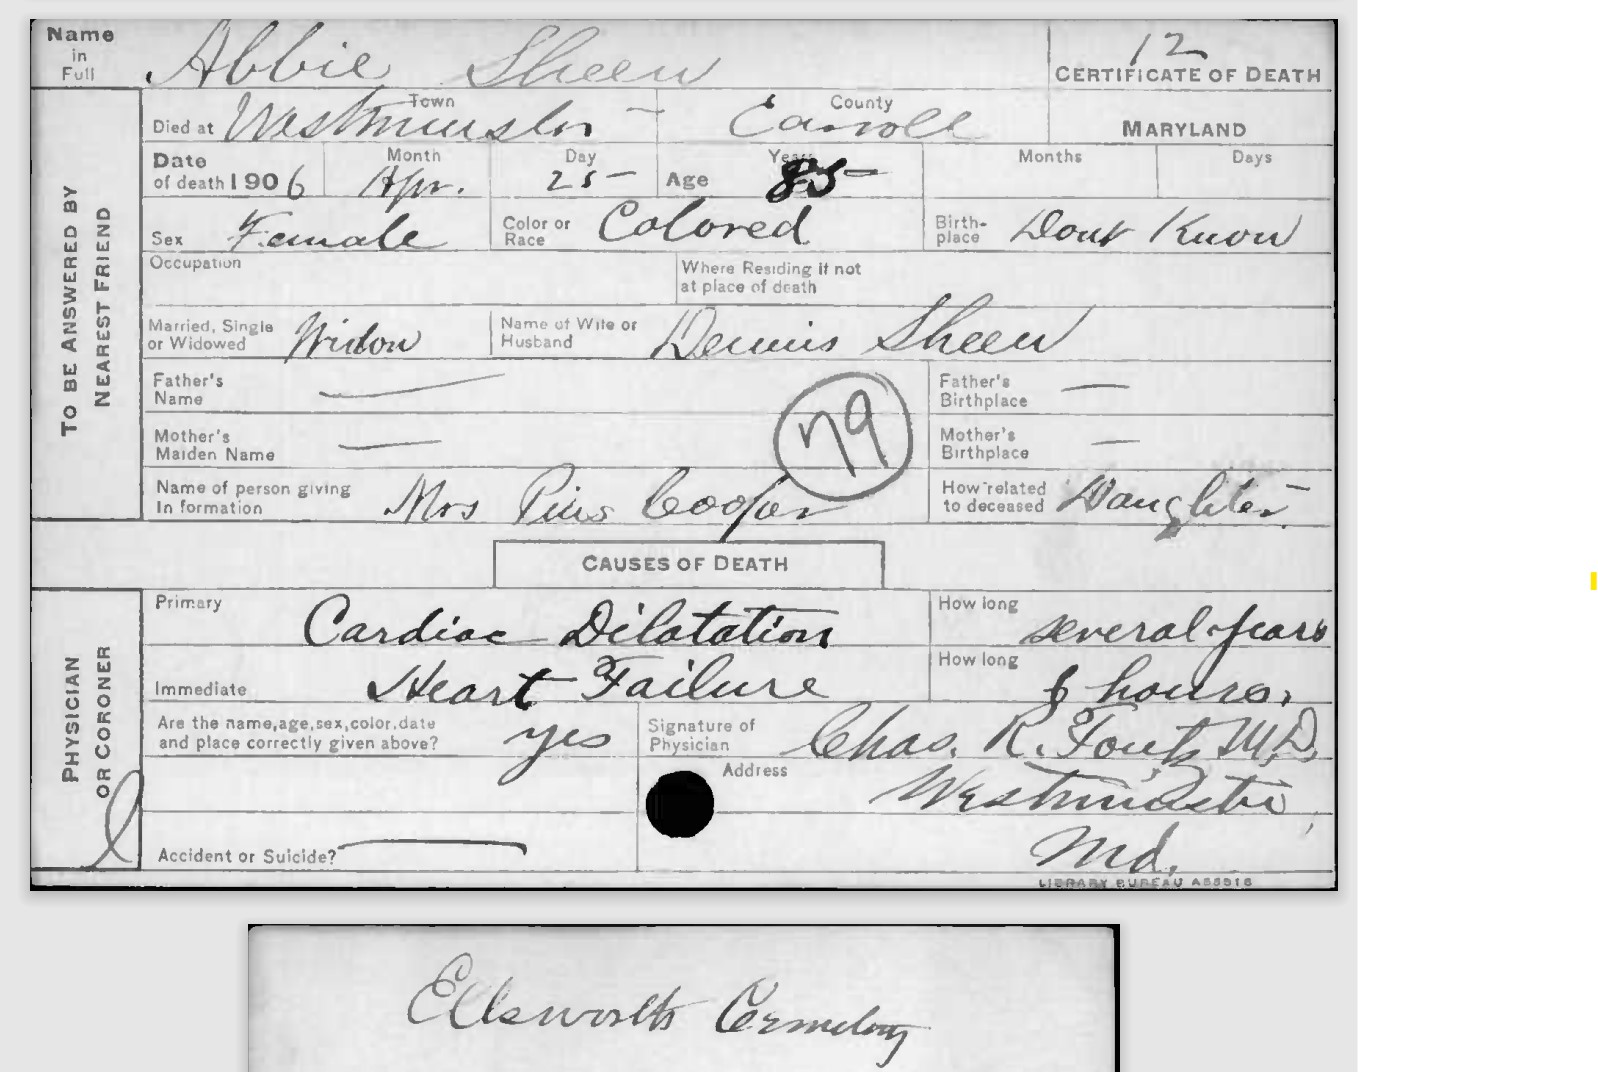 Name in Full Abbie Sheen
12
CERTIFICATE OF DEATH
TO BE ANSWERED BY NEAREST FRIEND
Died at Westminster Town
Carroll County
MARYLAND
Date of death 1906 Month Apr. Day 25 Age Years 85 Months Days
Sex Female Color or Race Colored Birth-place Dont Know
Occupation Where Residing if not at place of death
Married, Single or Widowed Widow Name of Wife or Husband Dennis Sheen
Father's Name — Father's Birthplace —
79
Mother's Maiden Name — Mother's Birthplace —
Name of person giving In formation Mrs Pius Cooper How related to deceased Daughter
CAUSES OF DEATH
PHYSICIAN OR CORONER
Primary Cardiac Dilatation How long several years
Immediate Heart Failure How long 6 hours.
Are the name, age, sex, color, date and place correctly given above? yes Signature of Physician Chas. R. Foutz M.D.
Address Westminster,
Accident or Suicide? — Md.
LIBRARY BUREAU A88916
Ellsworth Cemetery